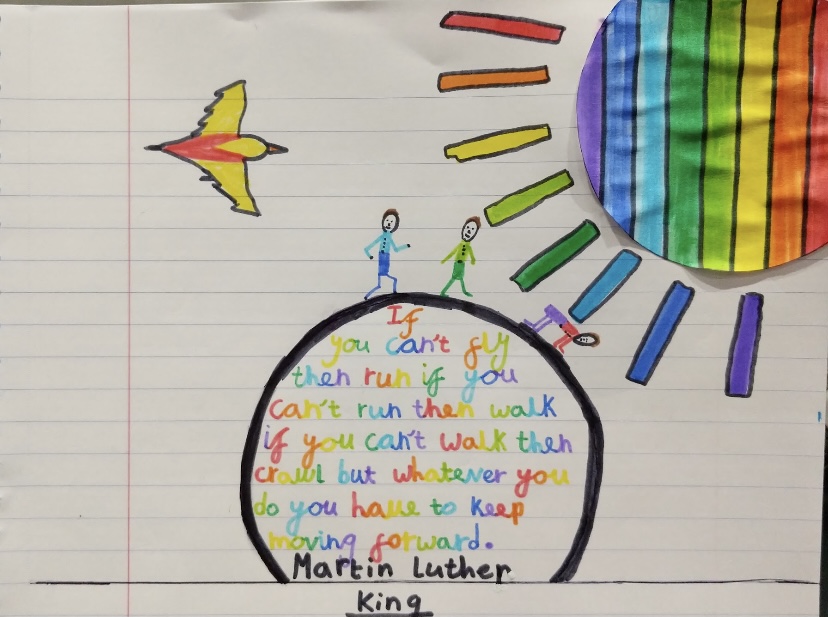 If
you can't fly
then run if you
can't run then walk
if you can't walk then
crawl but whatever you
do you have to keep
moving forward.
Martin Luther
King